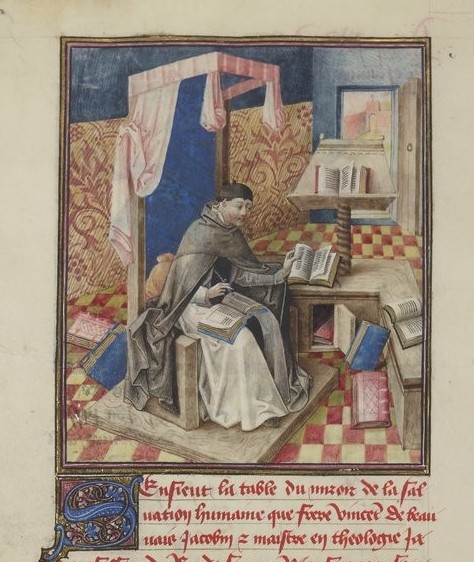 Sensieut la table du miroir de la sal
uation humaine que frere vincet de beau
uais Jacobin & maistre en theologie Ja